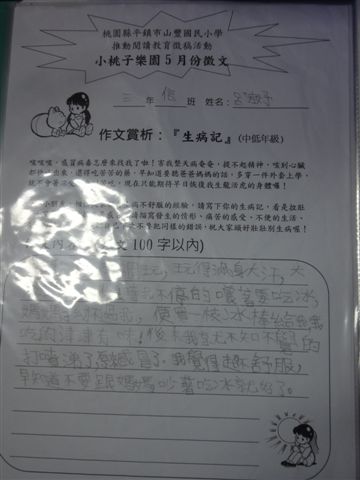 桃園縣平鎮市山豐國民小學
推動閱讀教育徵稿活動
小桃子樂園5月份徵文
三年信班 姓名：呂
作文賞析：『生病記』(中低年級)
咳咳咳，感冒病毒怎麼來找我了啦！害我整天病奄奄，提不起精神，咳到心臟
都快 出來，還得吃苦苦的藥，早知道要聽爸爸媽媽的話，多穿一件外套上學，
就不會 現在只能期待早日恢復我生龍活虎的身體囉！
小朋友， 病不舒服的經驗，請寫下你的生病記，看是拉肚
描寫發生的情形、痛苦的感受、不便的生活、
自己 次不要犯同樣的錯誤，祝大家頭好壯壯別生病喔！
文內 文100字以內)
玩，玩得滿身大汗，天
不停的嚷著要吃冰，
媽媽 不過我，便買一枝冰棒給我，我
吃的津津有味，後來我 不知不覺的
打噴涕了，我感冒了。我覺得超不舒服，
早知道不要跟媽媽吵著吃冰就好了。